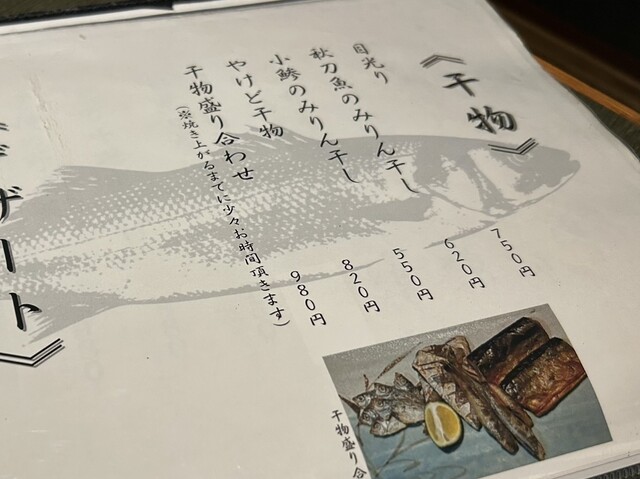 《干物》
目光り 750円
秋刀魚のみりん干し 620円
小鯵のみりん干し 550円
やけど干物 820円
干物盛り合わせ 980円
(※焼き上がるまでに少々お時間頂きます)
デザート》
干物盛り合